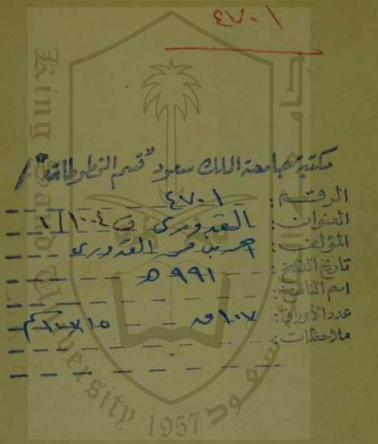 ٤٧٠١
مكتبة جامعة الملك سعود "قسم المخطوطات"
الرقم: ٤٧٠١
العنوان: القدوري
المؤلف: القدوري
تاريخ النسخ: ٩٩١ هـ
اسم الناسخ:
عدد الأوراق: ١٠٧ ق
ملاحظات:
King Saud University
1957